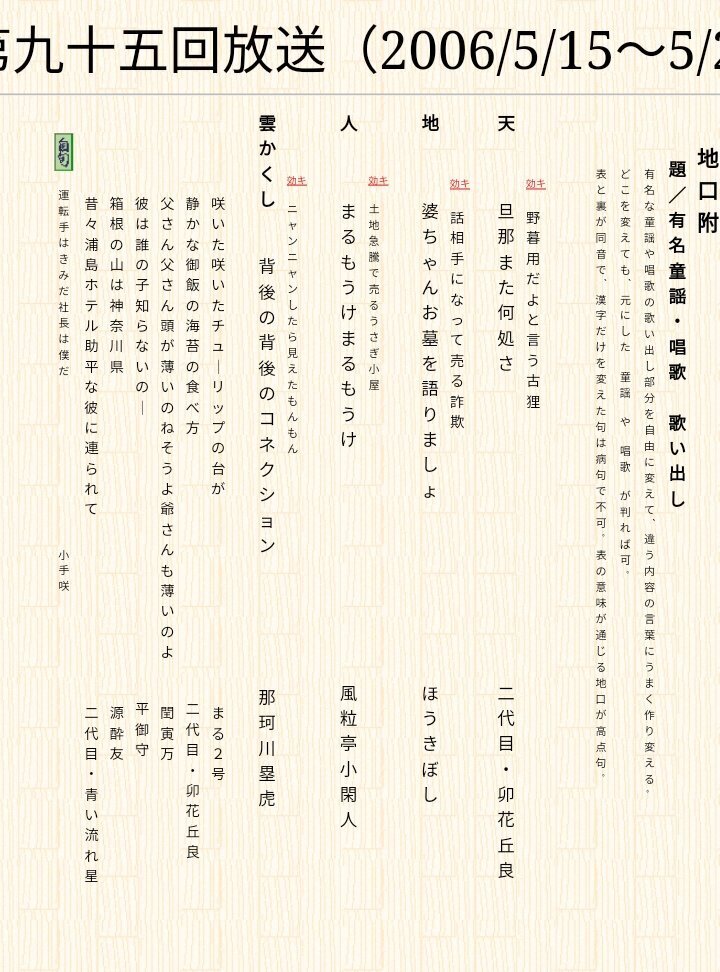 第九十五回放送（2006/5/15〜5/2
地口附
題／有名童謡・唱歌　歌い出し
有名な童謡や唱歌の歌い出し部分を自由に変えて、違う内容の言葉にうまく作り変える。
どこを変えても、元にした　童謡　や　唱歌　が判れば可。
表と裏が同音で、漢字だけを変えた句は病句で不可。表の意味が通じる地口が高点句。
効キ　野暮用だよと言う古狸
天　旦那また何処さ　二代目・卯花丘良
効キ　話相手になって売る詐欺
地　婆ちゃんお墓を語りましょ　ほうきぼし
効キ　土地急騰で売るうさぎ小屋
人　まるもうけまるもうけ　風粒亭小閑人
効キ　ニャンニャンしたら見えたもんもん
雲かくし　背後の背後のコネクション　那珂川塁虎
咲いた咲いたチュ―リップの台が　まる２号
静かな御飯の海苔の食べ方　二代目・卯花丘良
父さん父さん頭が薄いのねそうよ爺さんも薄いのよ　閏寅万
彼は誰の子知らないの―　平御守
箱根の山は神奈川県　源酔友
昔々浦島ホテル助平な彼に連られて　二代目・青い流れ星
運転手はきみだ社長は僕だ　小手咲